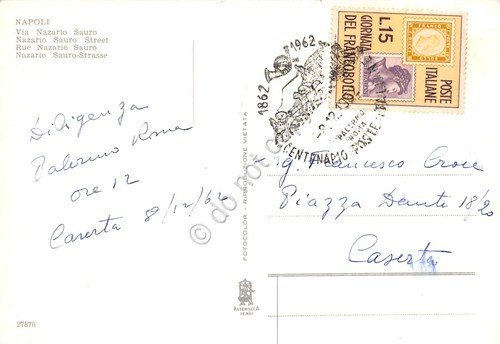 NAPOLI
Via Nazario Sauro
Nazario Sauro Street
Rue Nazario Sauro
Nazario Sauro-Strasse
Diligenza
Palermo Roma
ore 12
Caserta 8/12/62
27870
FOTOCOLOR - RIPRODUZIONE VIETATA
1862 1962
CENTENARIO POSTE
PALERMO
ROMA
L.15
GIORNATA
DEL FRANCOBOLLO
POSTE
ITALIANE
FRANCO
BOLLO
Sig. Francesco Croce
Piazza Dante 18/20
Caserta